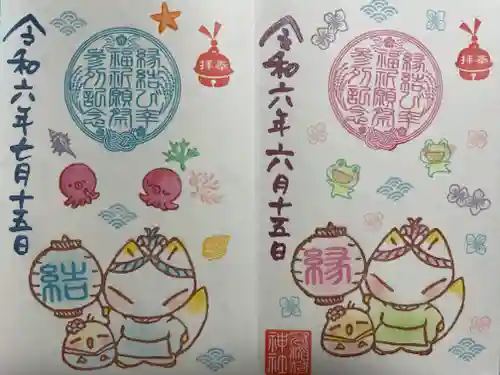 奉拝
縁結び幸
福祈願祭
参列記念
縁
令和六年六月十五日
神社
奉拝
縁結び幸
福祈願祭
参列記念
結
令和六年七月十五日